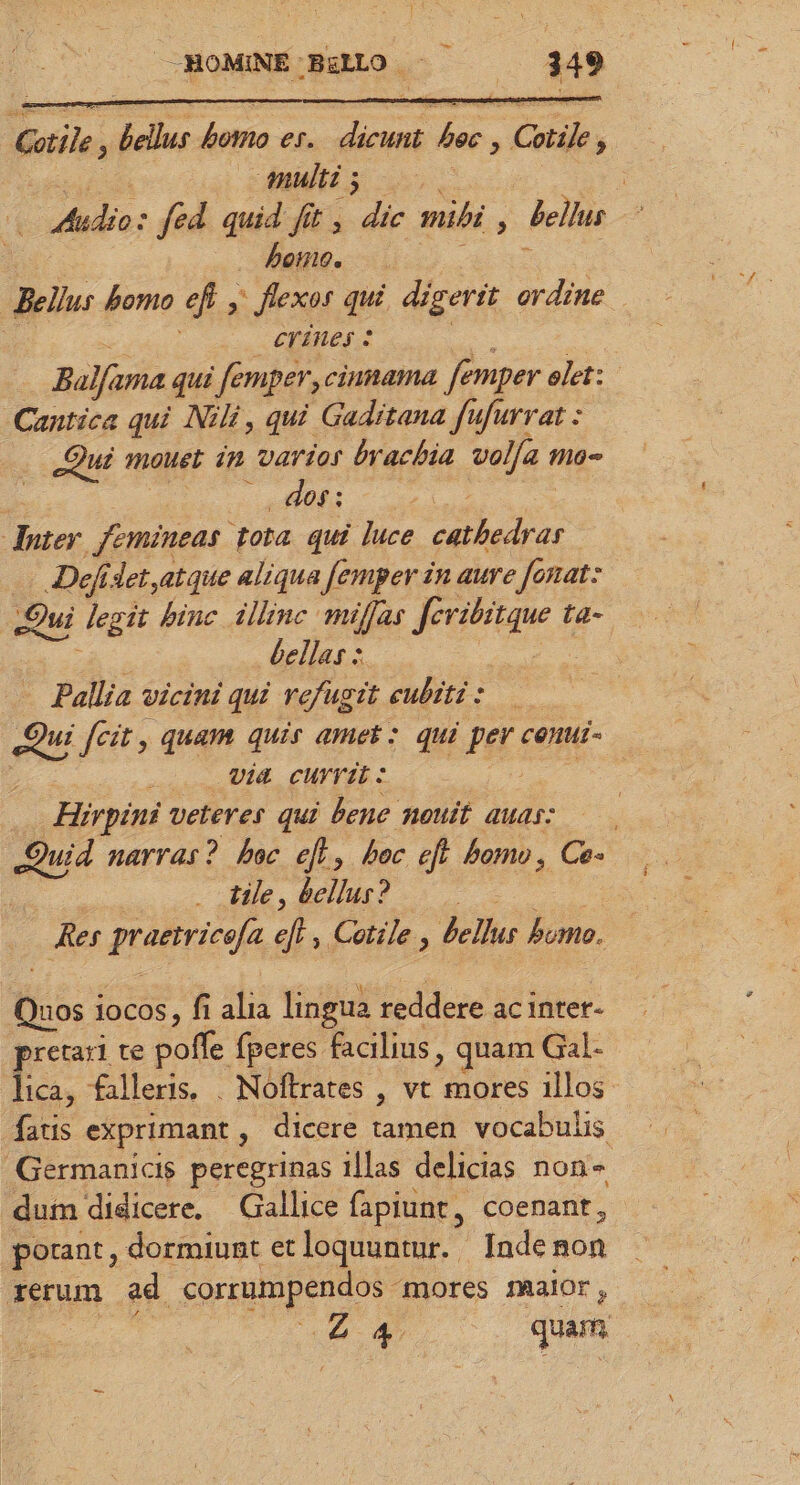 HOMINE BELLO 349
Cotile, bellus homo es. dicunt hoc, Cotile,
multi;
Audio: ſed quid ſit, dic mihi, bellus
homo.
Bellus homo eſt, flexos qui digerit ordine
crines:
Balſama qui ſemper, cinnama ſemper olet:
Cantica qui Nili, qui Gaditana ſuſurrat:
Qui mouet in varios brachia volſa mo-
dos:
Inter femineas tota qui luce cathedras
Deſidet, atque aliqua ſemper in aure ſonat:
Qui legit hinc illinc miſſas ſcribitque ta-
bellas:
Pallia vicini qui refugit cubiti:
Qui ſcit, quam quis amet: qui per conui-
via currit:
Hirpini veteres qui bene nouit auas:
Quid narras? hoc eſt, hoc eſt homo, Co-
tile, bellus?
Res praetricoſa eſt, Cotile, bellus homo.
Quos iocos, ſi alia lingua reddere ac inter-
pretari te poſſe ſperes facilius, quam Gal-
lica, falleris. Noſtrates, vt mores illos
ſatis exprimant, dicere tamen vocabulis
Germanicis peregrinas illas delicias non-
dum didicere. Gallice ſapiunt, coenant,
potant, dormiunt et loquuntur. Inde non
rerum ad corrumpendos mores maior,
Z 4 quam